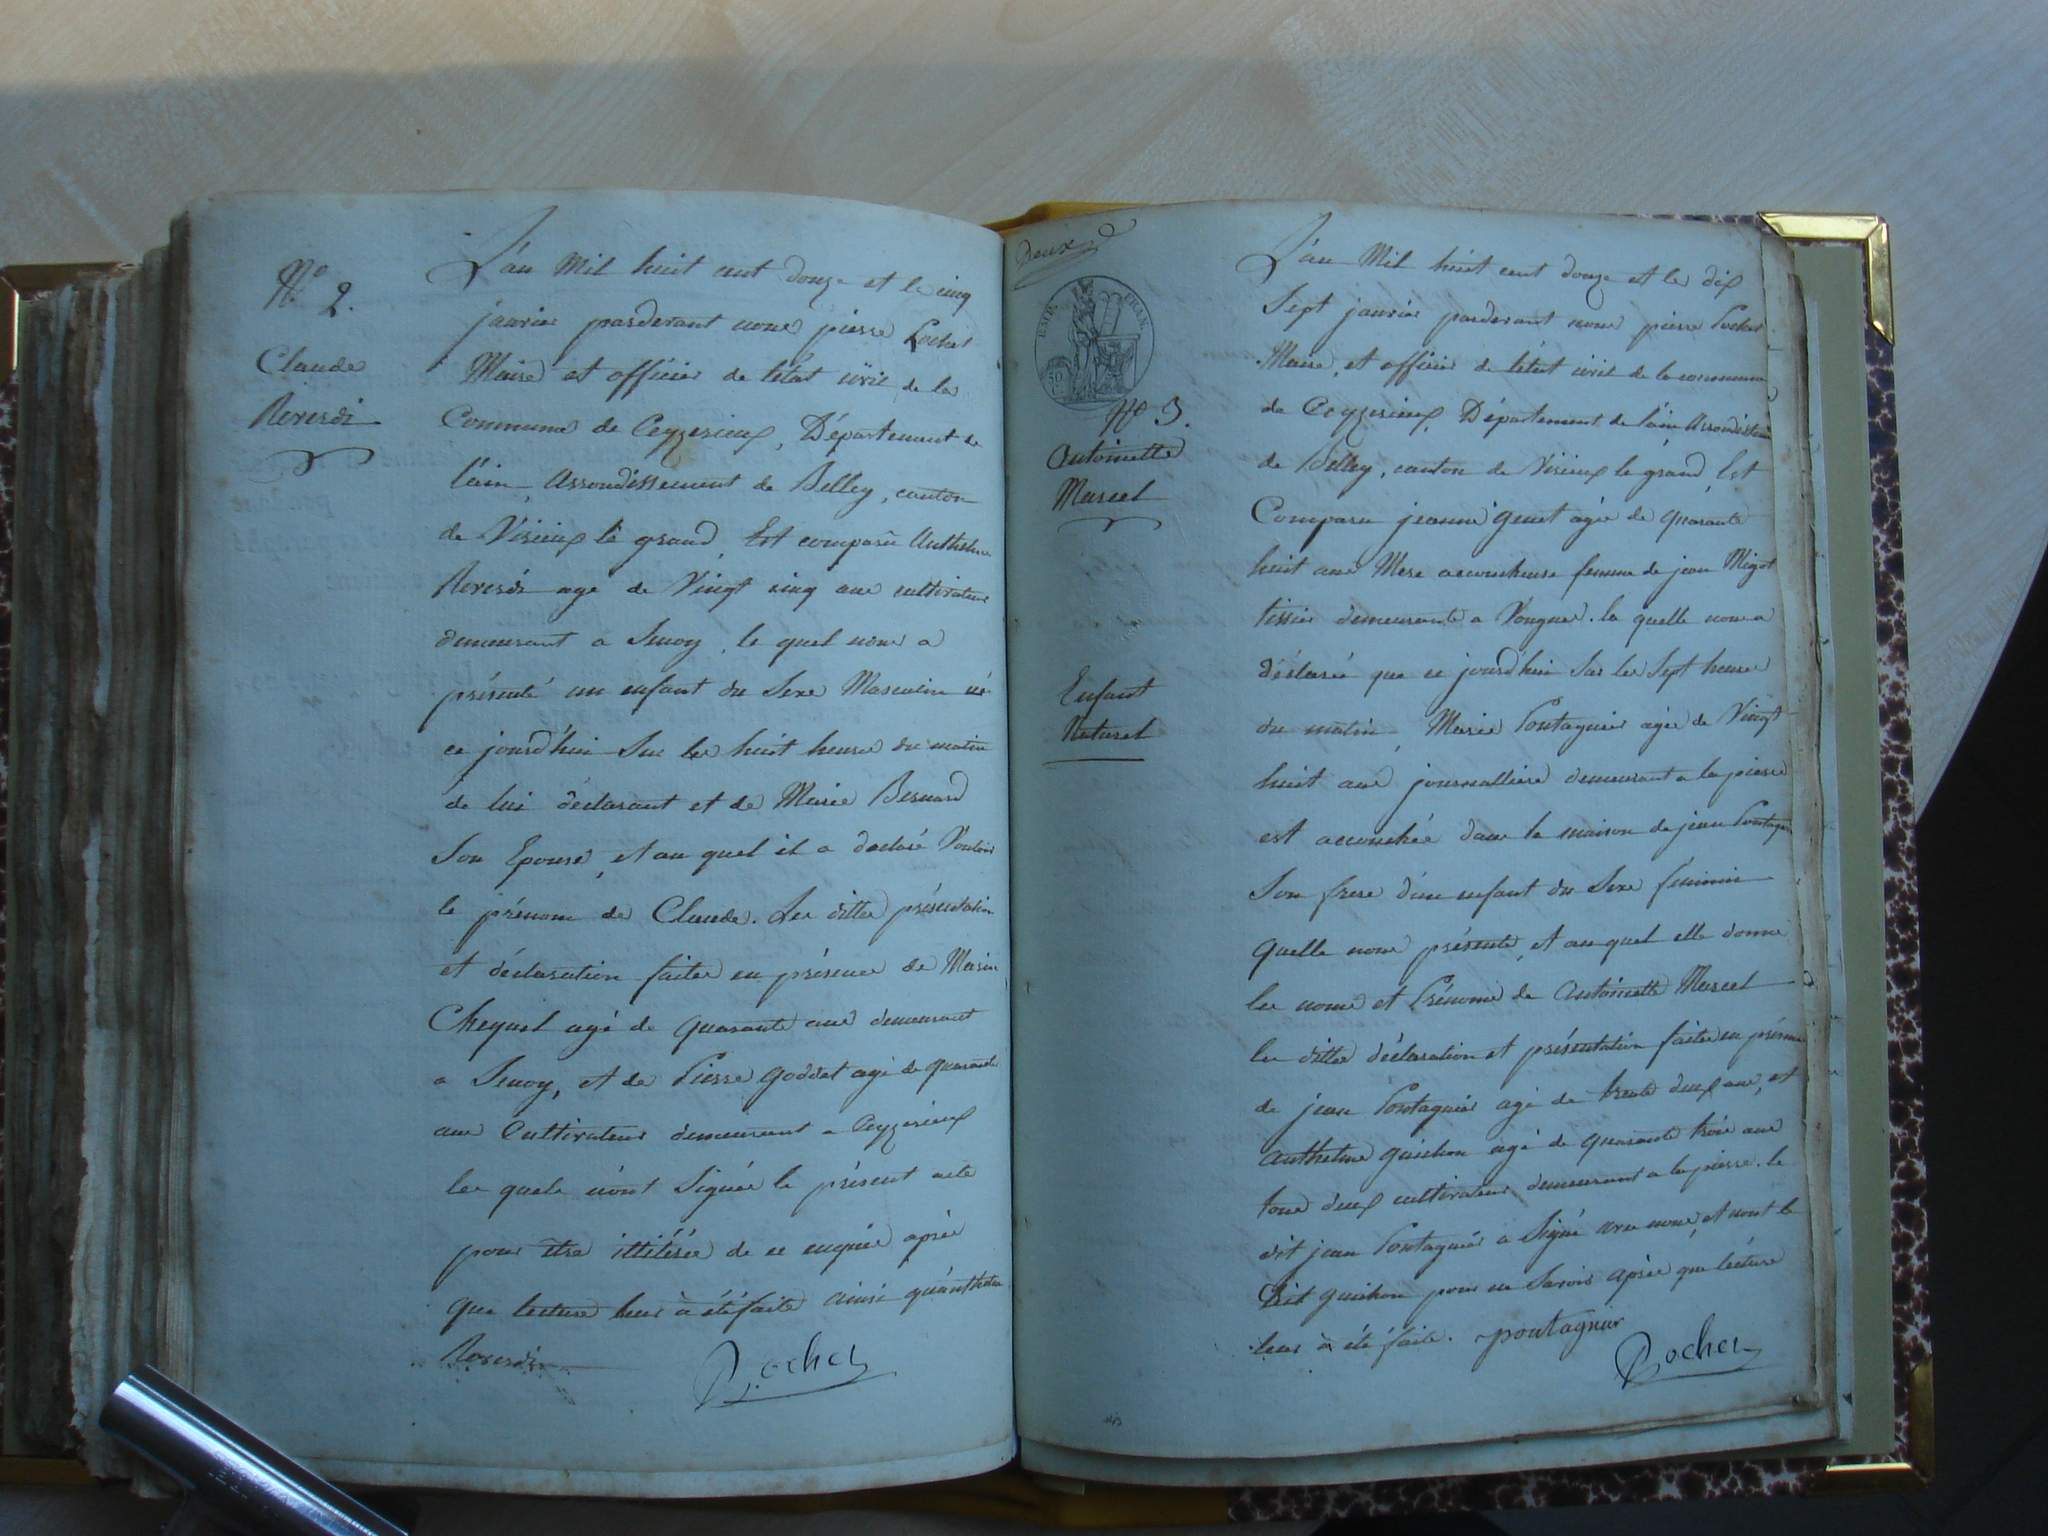 N.o 2.
Claude
Reverdi
L'an Mil huit cent douze et le cinq
janvier pardevant nous pierre Pochet
Maire et officier de l'état civil de la
Commune de Ceyzerieux, Département de
l'ain, Arrondissement de Belley, canton
de Virieux le grand, Est comparû Anthelme
Reverdi agé de Vingt cinq ans cultivateur
demeurant a Senoy, le quel nous a
présenté un enfant du Sexe Masculin né
ce jourd'hui Sur les huit heures du matin
de lui déclarant et de Marie Bernard
Son Epouse, et au quel il a declaré Vouloir
le prénom de Claude. Les dittes présentation
et déclaration faites en présence de Marin
Chequet agé de quarante ans demeurant
a Senoy, et de Pierre Goddet agé de quarante
ans Cultivateur demeurant a Ceyzerieux
les quels n'ont Signés le présent acte
pour être illiterés de ce enquis après
que lecture leur à été faite ainsi qu'anthelme
Reverdi
Pochet
Deux
EMP. FRAN.
50
N.o 3.
Antoinette
Marcel
Enfant
Naturel
L'an Mil huit cent douze et le dix
Sept janvier pardevant nous pierre Pochet
Maire, et officier de l'état civil de la commune
de Ceyzerieux, Département de l'ain, Arrondissement
de Belley, canton de Virieux le grand, Est
Comparu jeanne quet agée de quarante
huit ans Mere accoucheuse femme de jean Migot
tissier demeurante a Vongne. la quelle nous a
déclaré que ce jourd'hui Sur les Sept heures
du matin, Marie Pontagnier agée de Vingt
huit ans journalliere demeurant a la pierre
est accouchée dans la maison de jean Pontagnier
Son frere d'un enfant du Sexe féminin
quelle nous présente, et au quel elle donne
les noms et Prénoms de Antoinette Marcel
les dittes déclaration et présentation faites en présence
de jean Pontagnier agé de trente deux ans, et
anthelme guichon agé de quarante trois ans
tous deux cultivateurs demeurant a la pierre. le
dit jean Pontagnier a Signé avec nous, et non le
Dit guichon pour ne Savoir après que lecture
leur à été faite. pontagnier
Pochet